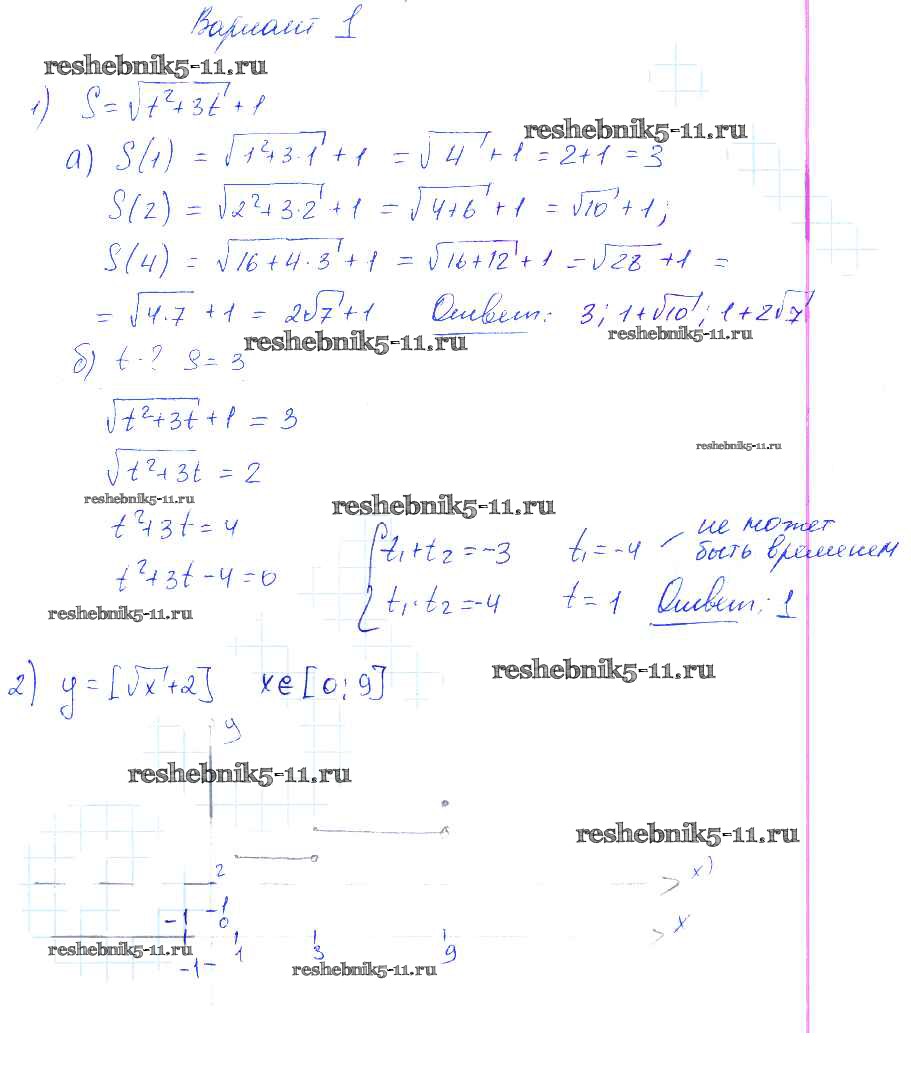 Вариант 1
reshebnik5-11.ru
1) S = √(t²+3t) + 1
reshebnik5-11.ru
а) S(1) = √(1²+3·1) + 1 = √4 + 1 = 2+1 = 3
S(2) = √(2²+3·2) + 1 = √(4+6) + 1 = √10 + 1;
S(4) = √(16+4·3) + 1 = √(16+12) + 1 = √28 + 1 =
= √(4·7) + 1 = 2√7 + 1 Ответ: 3; 1+√10; 1+2√7
reshebnik5-11.ru reshebnik5-11.ru
б) t-? S = 3
√(t²+3t) + 1 = 3
reshebnik5-11.ru
√(t²+3t) = 2
reshebnik5-11.ru reshebnik5-11.ru
t²+3t = 4
t²+3t-4=0
{ t₁+t₂=-3 t₁=-4 не может быть временем
t₁·t₂=-4 t = 1 Ответ: 1
reshebnik5-11.ru
reshebnik5-11.ru
2) y = [√x+2] x∈[0; 9]
y
reshebnik5-11.ru
reshebnik5-11.ru
2 x)
-1 -1 0 x
reshebnik5-11.ru
-1 1 3 9
reshebnik5-11.ru